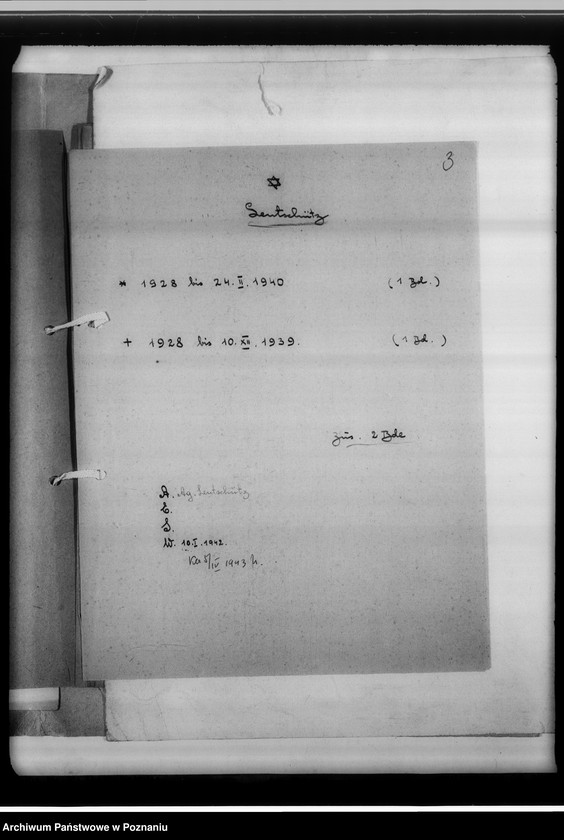 3
✡
Lentschütz
* 1928 bis 24. II. 1940 (1 Bd.)
+ 1928 bis 10. XII. 1939. (1 Bd.)
Zus. 2 Bde
A. Ag. Lentschütz
E.
S.
W. 10. I. 1942.
IV 1943
Archiwum Państwowe w Poznaniu